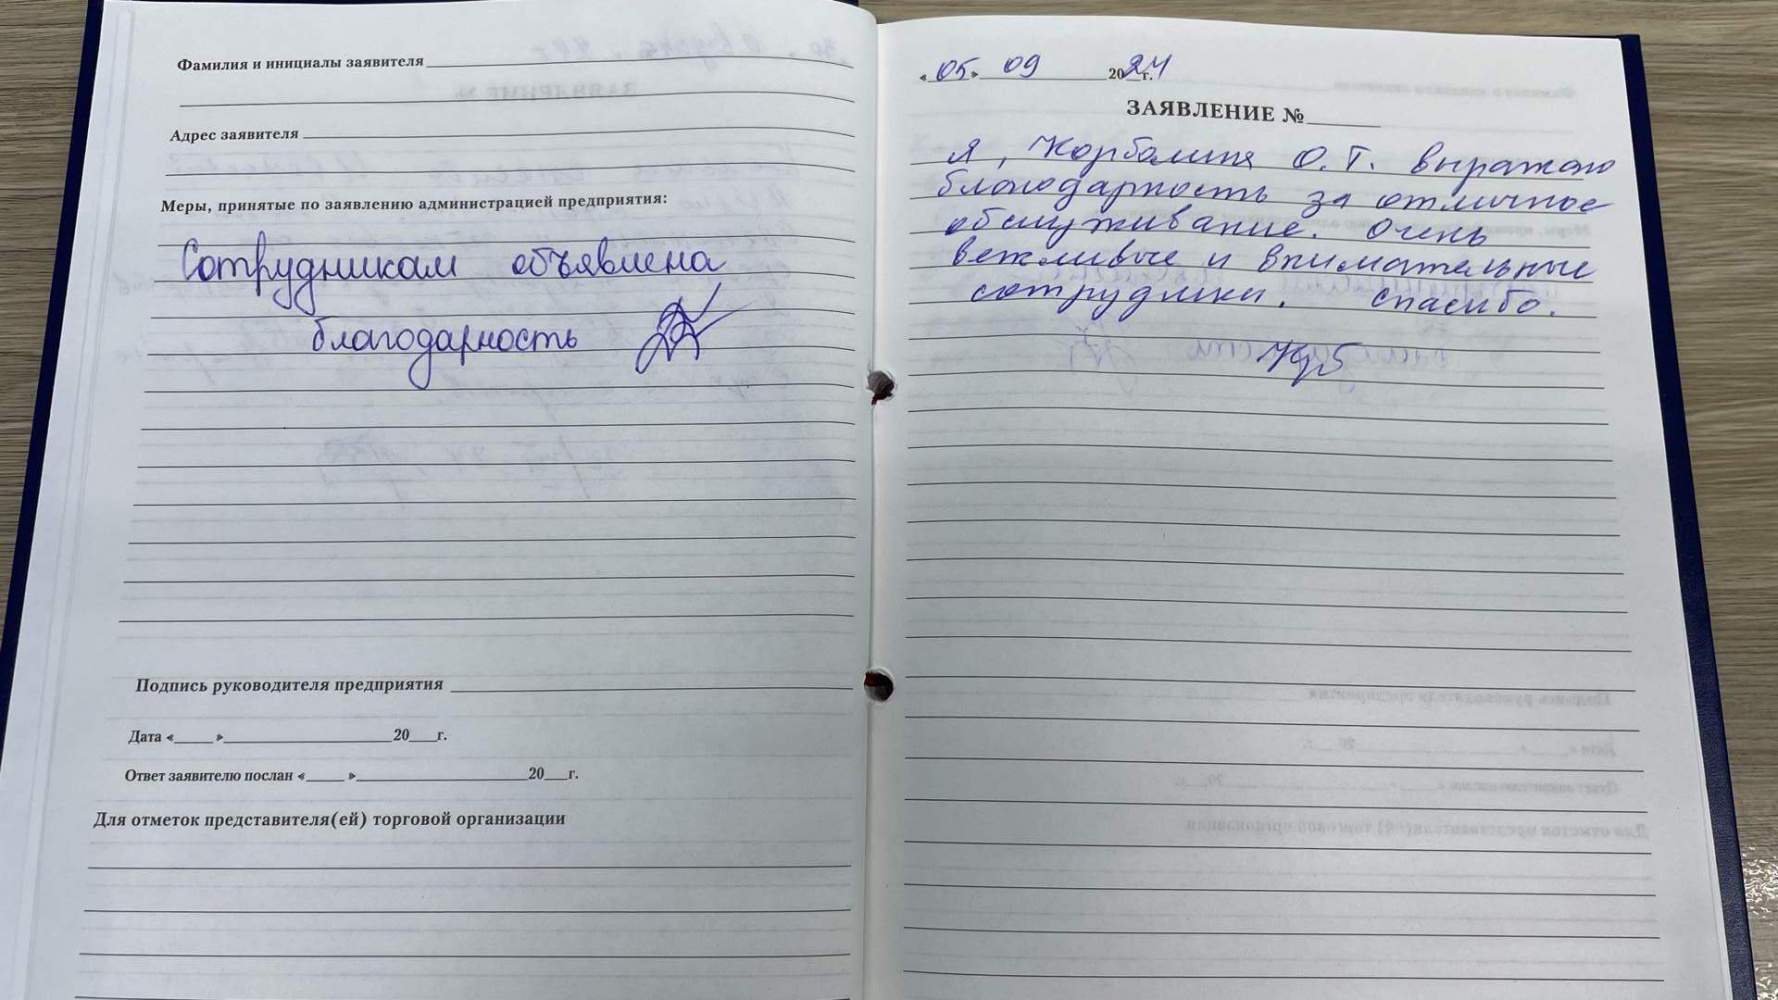 Фамилия и инициалы заявителя
Адрес заявителя
Меры, принятые по заявлению администрацией предприятия:
Сотрудникам объявлена
благодарность
Подпись руководителя предприятия
Дата «____ »____________20___г.
Ответ заявителю послан «____ »____________20___г.
Для отметок представителя(ей) торговой организации
«05» 09 2024г.
ЗАЯВЛЕНИЕ №
Я, О.Т. выражаю
благодарность за отличное
обслуживание. Очень
вежливые и внимательные
сотрудники. Спасибо.